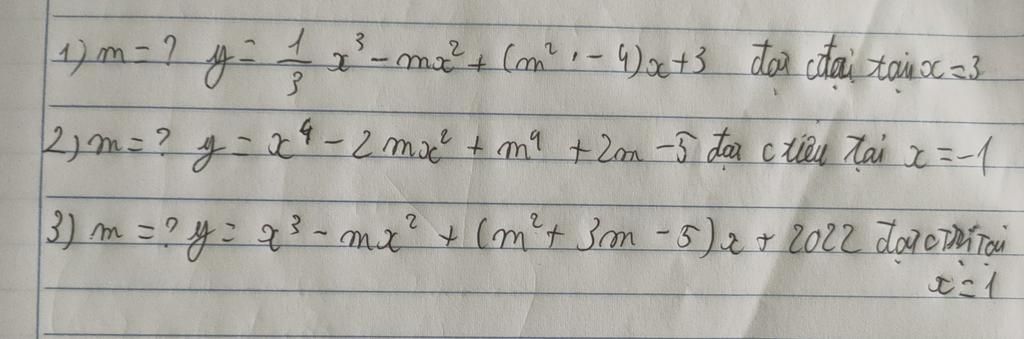 1) m = ? y = 1/3 x³ - mx² + (m² - 4)x + 3 đạt cđại tại x = 3
2) m = ? y = x⁴ - 2mx² + m⁴ + 2m - 5 đạt c tiểu tại x = -1
3) m = ? y = x³ - mx² + (m² + 3m - 5)x + 2022 đạt cTrị Tại
x = 1